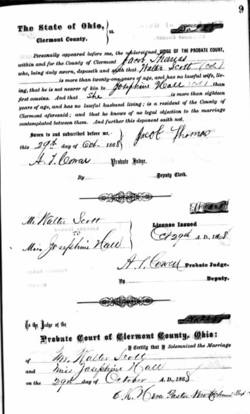 9
The State of Ohio,
Clermont County.
ss.
Personally appeared before me, the undersigned JUDGE OF THE PROBATE COURT,
within and for the County of Clermont Jacob Thomas
who, being duly sworn, deposeth and saith that Walter Scott (Col.)
is more than twenty-one years of age, and has no lawful wife, liv-
ing, that he is not nearer of kin to Josephine Hall (Col.) than
first cousins. And that She is more than eighteen
years of age, and has no lawful husband living; is a resident of the County of
Clermont aforesaid; and that he knows of no legal objection to the marriage
contemplated between them. And further this deponent saith not.
Sworn to and subscribed before me,
this 29th day of Oct. 1908 Jacob Thomas
Probate Judge.
By Deputy Clerk.
Mr. Walter Scott
TO
Miss Josephine Hall
License Issued
Oct 29th A. D. 1908
Probate Judge.
By Deputy.
To the Judge of the
Probate Court of Clermont County, Ohio:
I Certify that I Solemnized the Marriage
of Mr. Walter Scott
and Miss Josephine Hall
on the 29th day of October A. D. 1908